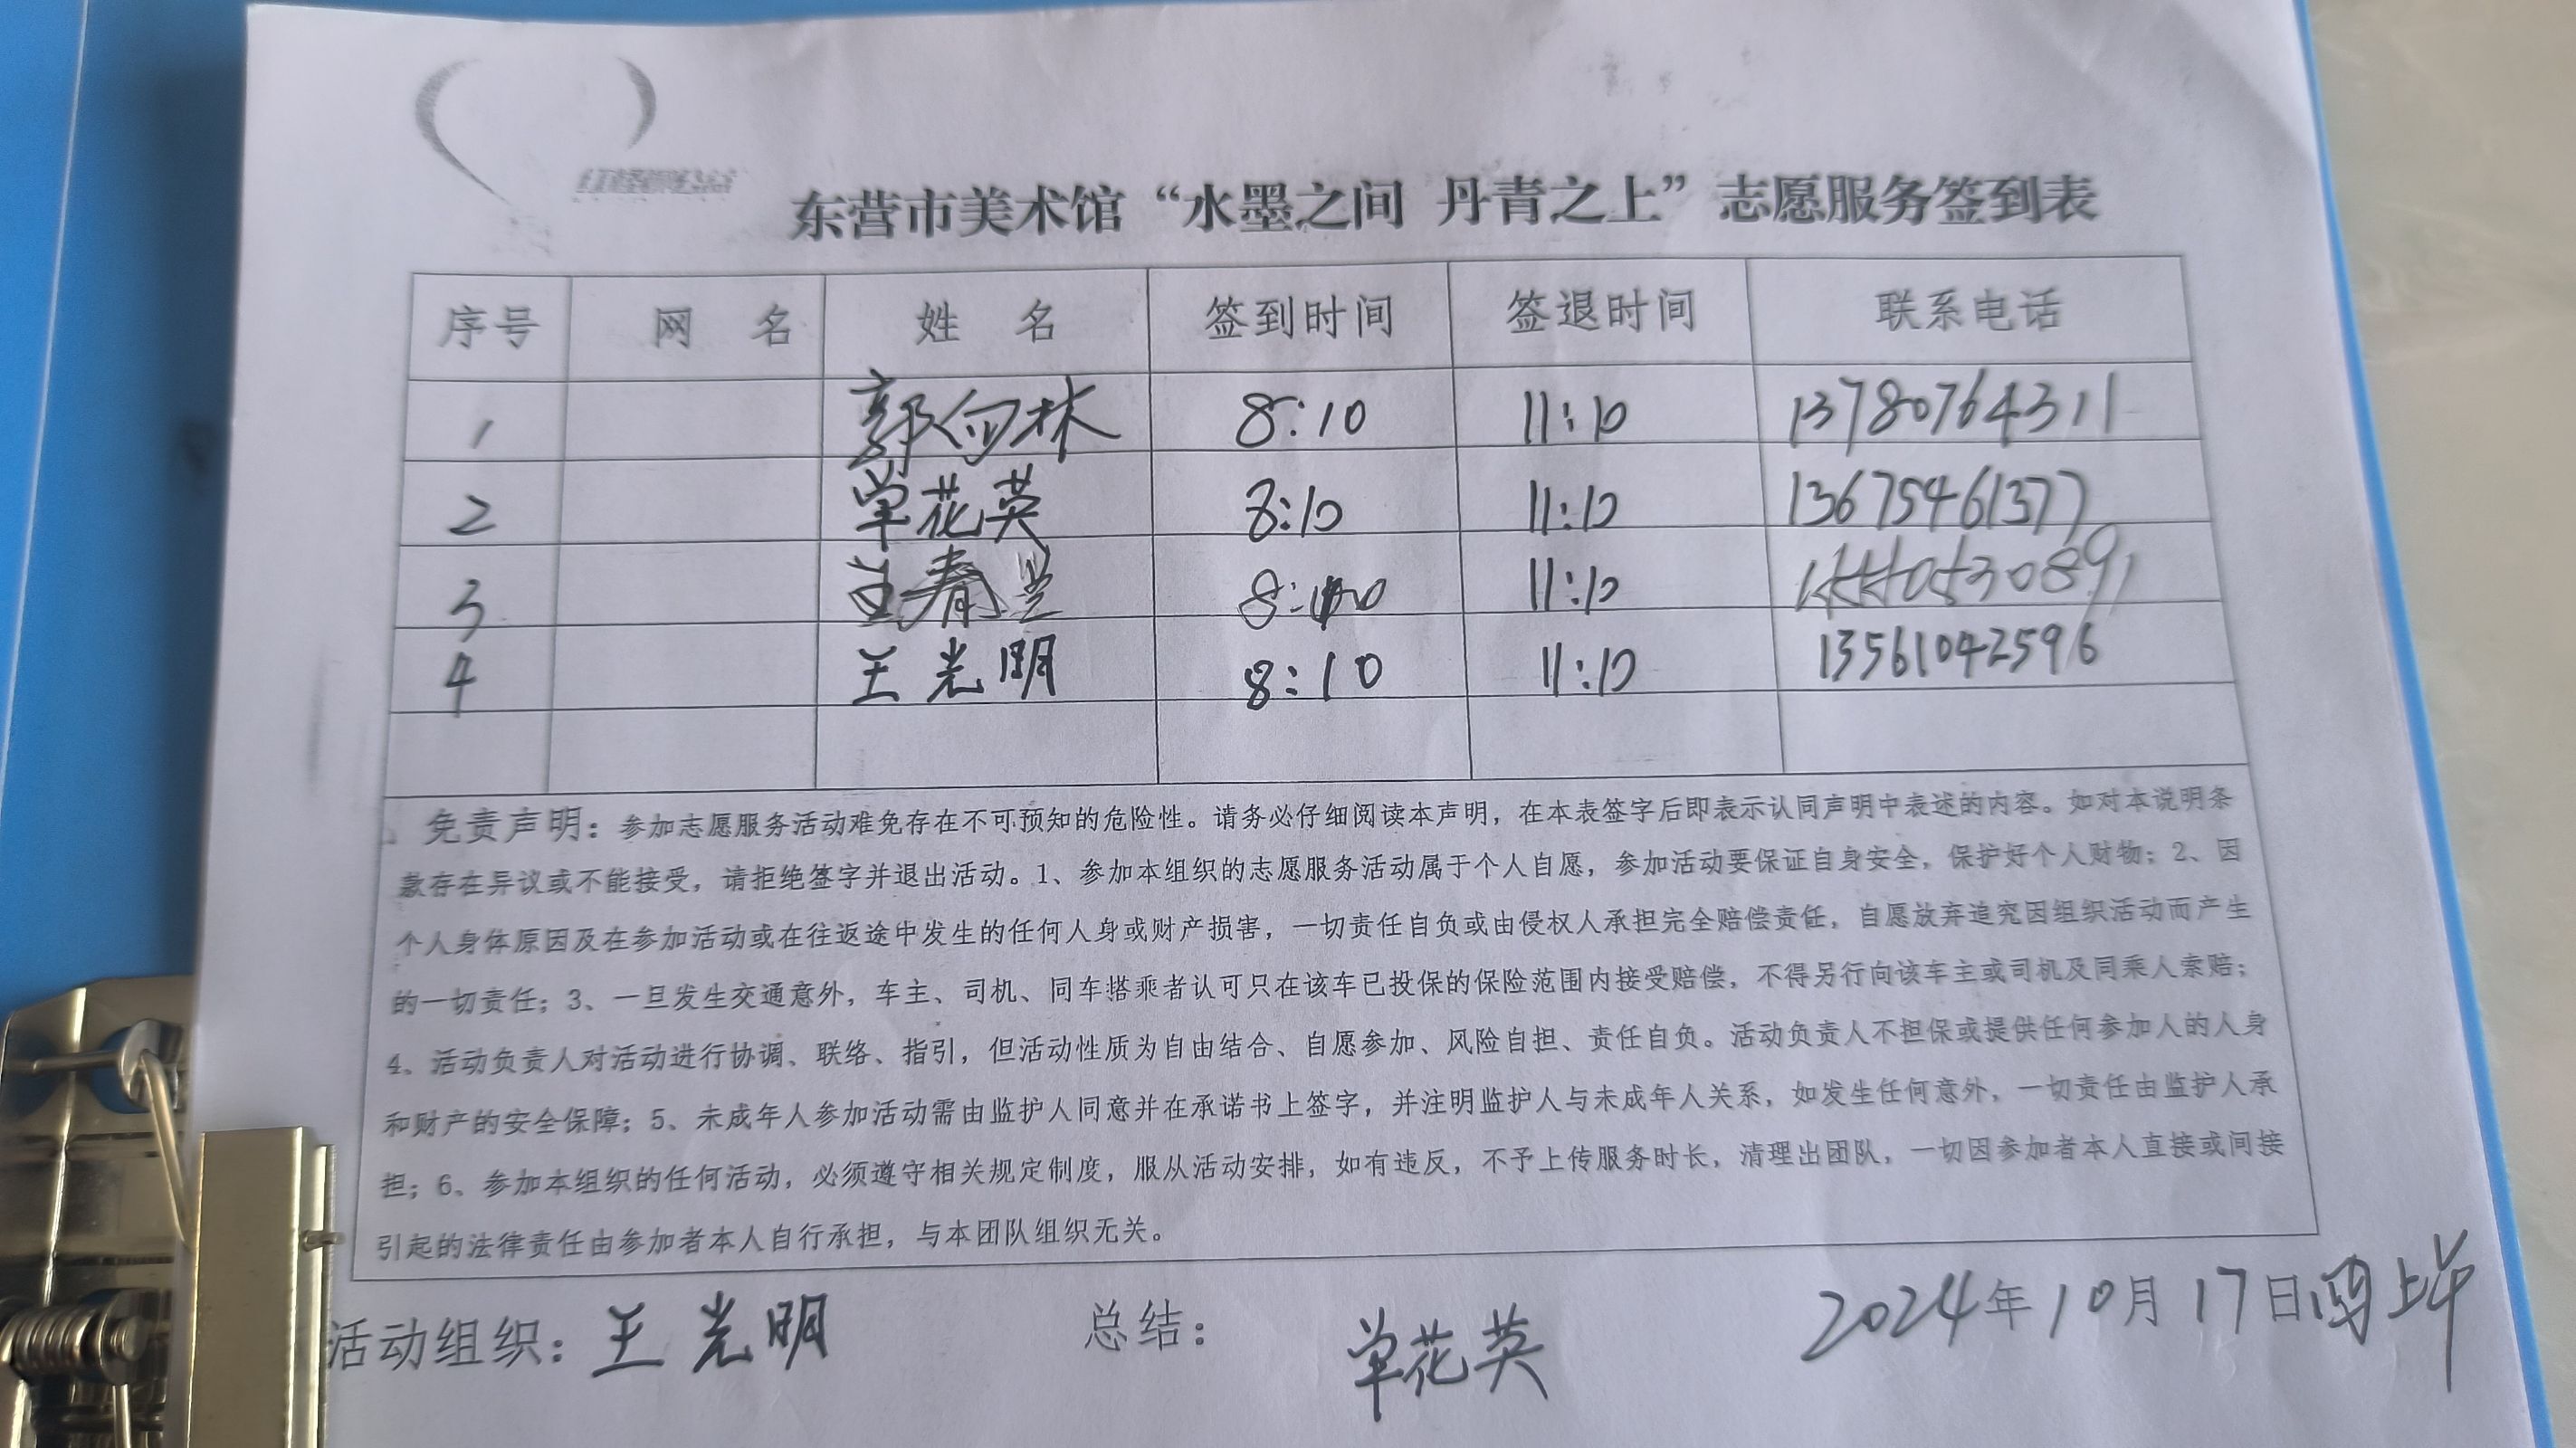 东营市美术馆“水墨之间 丹青之上”志愿服务签到表
序号 网 名 姓 名 签到时间 签退时间 联系电话
1 郭向林 8:10 11:10 13780764311
2 单花英 8:10 11:10 13675461377
3 春兰 11:10
4 王光明 8:10 11:10 13561042596
免责声明：参加志愿服务活动难免存在不可预知的危险性。请务必仔细阅读本声明，在本表签字后即表示认同声明中表述的内容。如对本说明条
款存在异议或不能接受，请拒绝签字并退出活动。1、参加本组织的志愿服务活动属于个人自愿，参加活动要保证自身安全，保护好个人财物；2、因
个人身体原因及在参加活动或在往返途中发生的任何人身或财产损害，一切责任自负或由侵权人承担完全赔偿责任，自愿放弃追究因组织活动而产生
的一切责任；3、一旦发生交通意外，车主、司机、同车搭乘者认可只在该车已投保的保险范围内接受赔偿，不得另行向该车主或司机及同乘人索赔；
4、活动负责人对活动进行协调、联络、指引，但活动性质为自由结合、自愿参加、风险自担、责任自负。活动负责人不担保或提供任何参加人的人身
和财产的安全保障；5、未成年人参加活动需由监护人同意并在承诺书上签字，并注明监护人与未成年人关系，如发生任何意外，一切责任由监护人承
担；6、参加本组织的任何活动，必须遵守相关规定制度，服从活动安排，如有违反，不予上传服务时长，清理出团队，一切因参加者本人直接或间接
引起的法律责任由参加者本人自行承担，与本团队组织无关。
活动组织：王光明 总结： 单花英 2024年10月17日周四上午